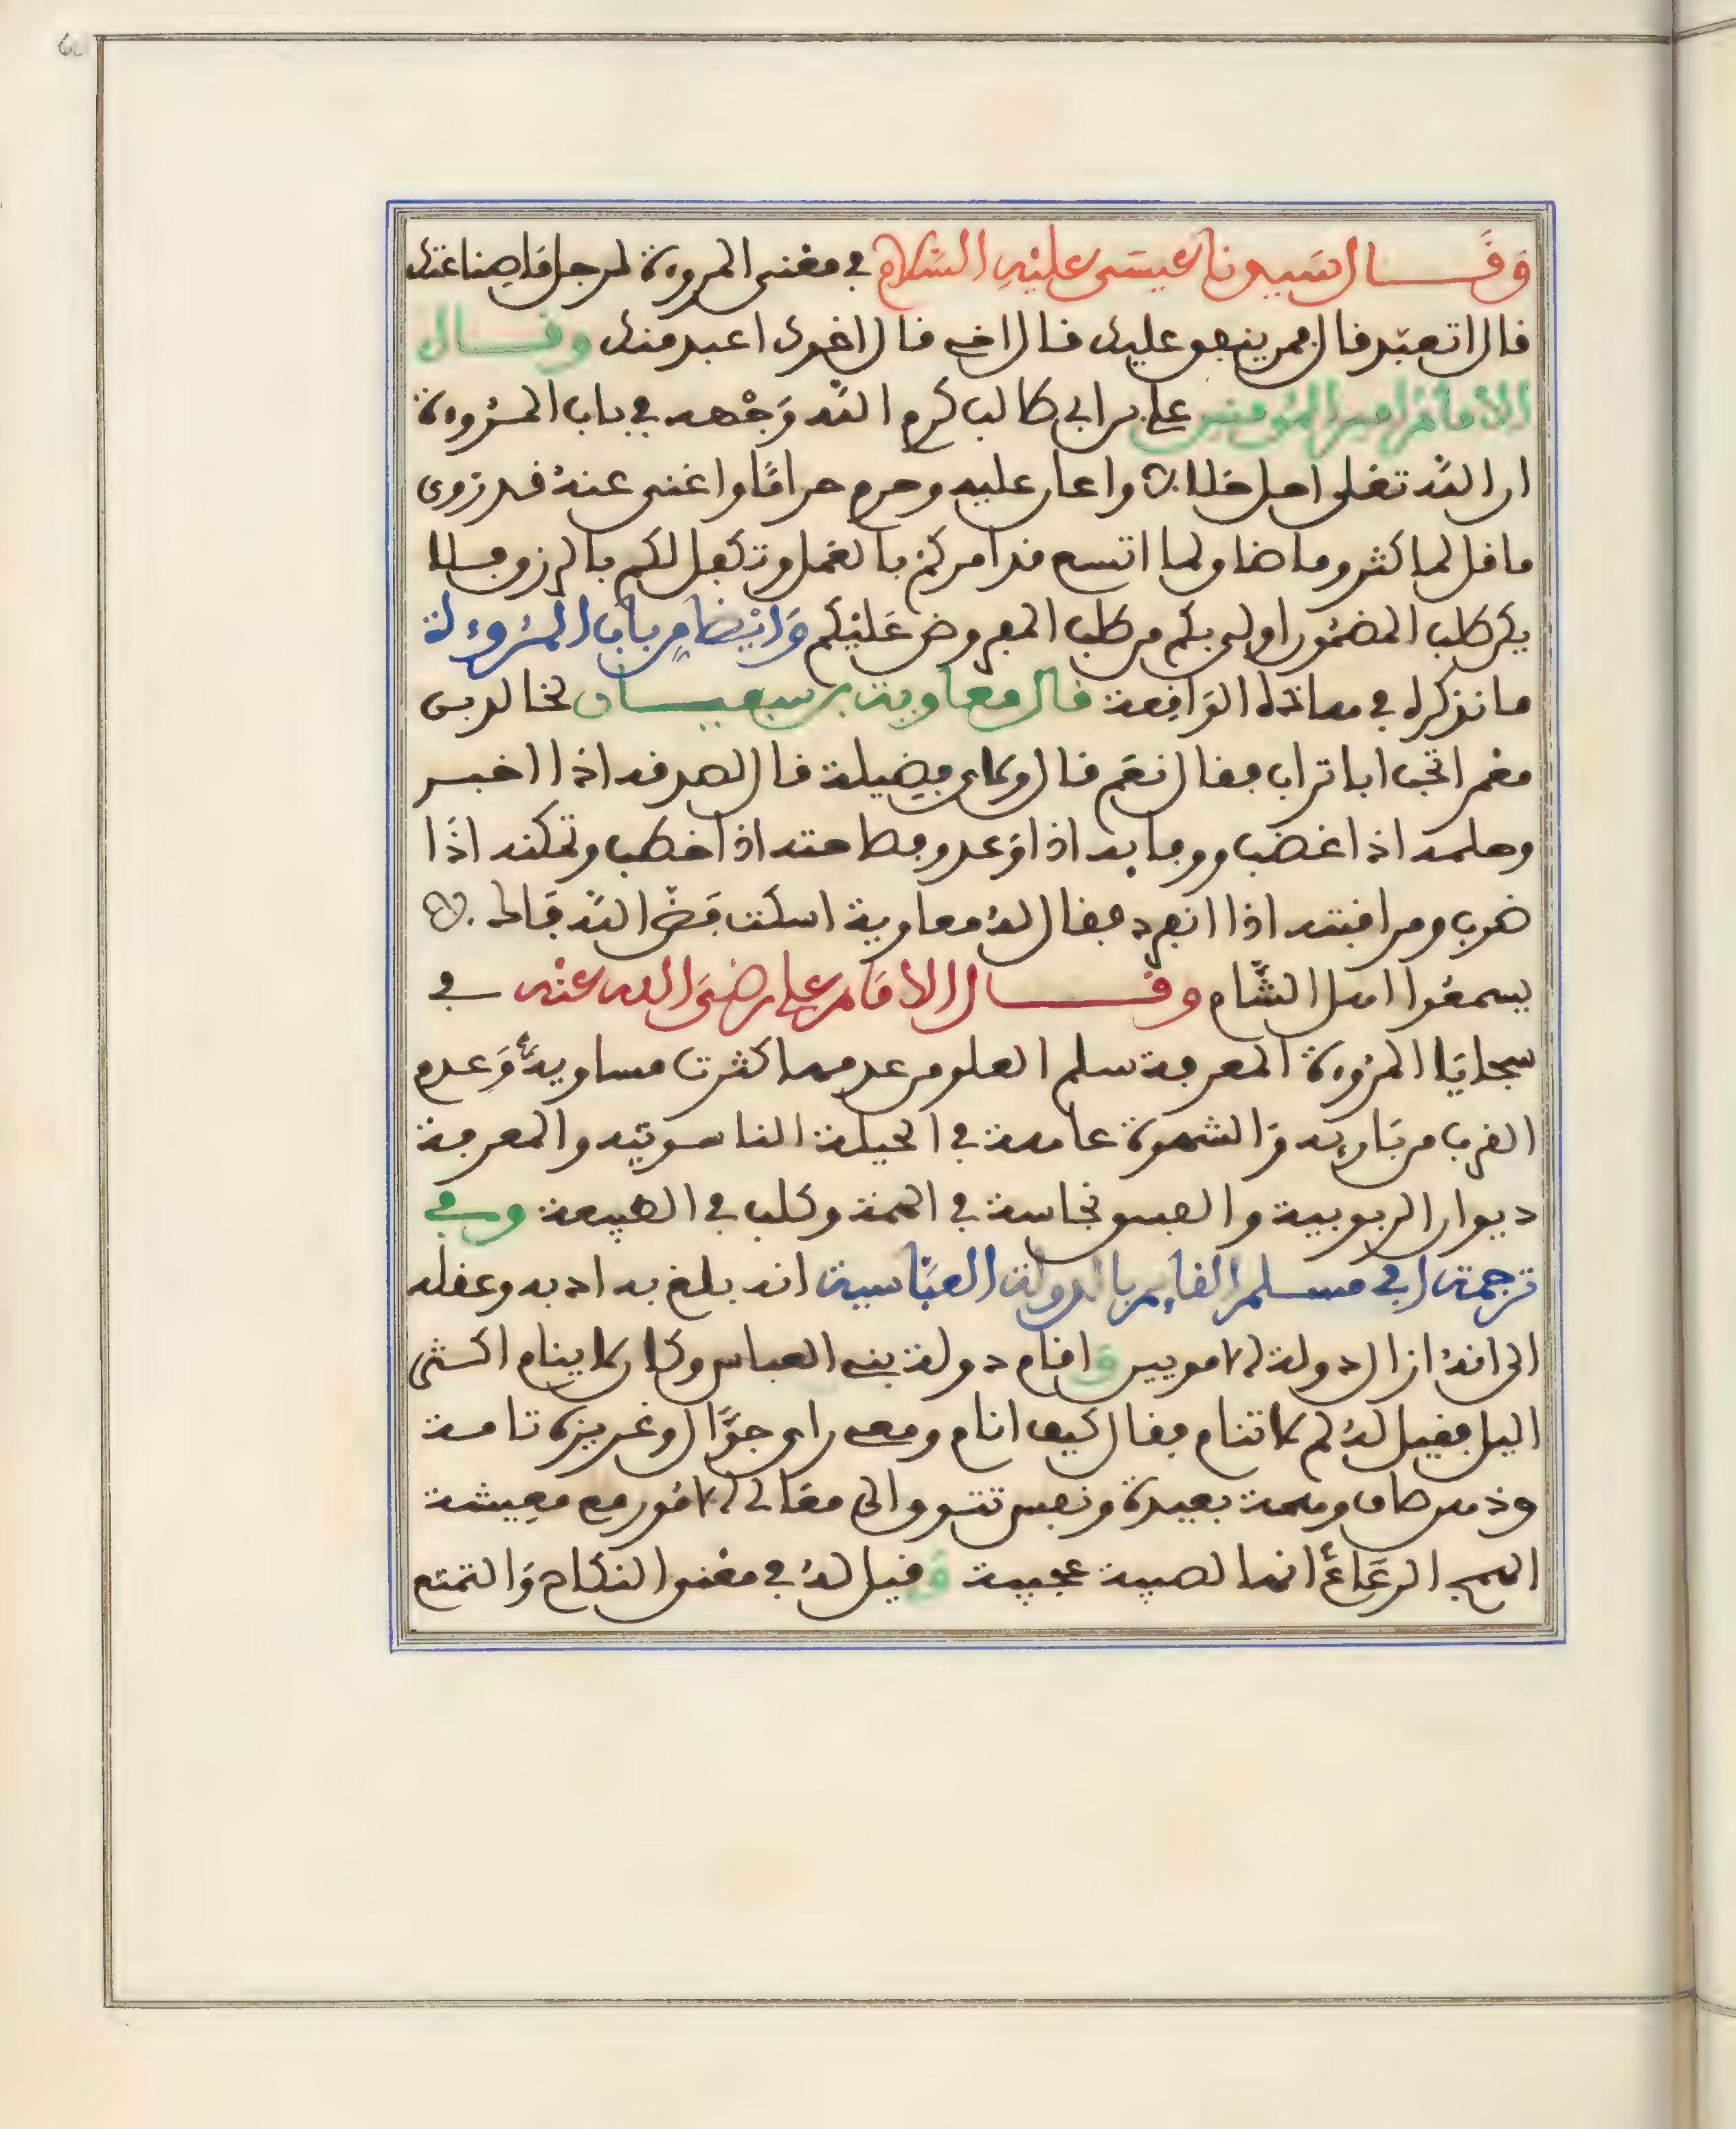 وَقَال سَيدنا عيسَى عليْهِ السَّلام في مغنى المروءة لرجل مَا صِناعتك
قال اتعبّد قال فمن ينفق عليك قال اخي قال اخوك اعبد منك وقال
الامام امير المؤمنين علي بن ابي طالب كرم الله وَجْهه في باب المُروءة
ان الله تعلى احل حَلالاً واعان عليه وحرم حرامًا واغنى عنهُ قد زوى
ما قل لما كثر وما ضاق لما اتسع قد امركم بالعمل وتكفل لكم بالرزق فلا
يكن طلب المضمُون اولى بكم من طلب المفروض عَليْكم وَايْضا مِن باب المُروءة
ما نذكره في هاذه الوَاقِعة قال معاوية بن سبعيان لخالد بن
معمر اتحب ابا تراب فقال نعَم قال ولاي فضيلة قال لصدقه اذا اخبر
وحلمه اذا غضب ووفايه اذا وَعد وفصاحته اذا خطب وتمكنه اذَا
ضرب ومراقبته اذا انفرد فقال لهُ معاوية اسكت فَضّ الله فَاك
يسمعُوا اهل الشَّام وقال الامَام علي رضيَ الله عنه في
سجايَا المرُوءة المعرفة سلم العلوم من عدمها كثرت مساويهُ وَعدم
القرب من بَاريه وَالشهوة عاهة في الحيلة الناسوتيه والمعرفة
ديوان الربوبية والفسق نجاسة في الهمة وكلب في الطبيعة وفي
ترجمة ابي مسلم القايم بالدولة العبّاسية انه بلغ به ادبه وعقله
الى انهُ ازال دولة الامويين وَاقام دولة بني العباس وكان لا ينام اكثر
اليل فقيل لهُ لم لا تنام فقال كيف انام ومعي راي جوَّال وغريزة تامة
وذهن صاف وهمة بعيدة ونفس تتوق الى معَالي الامُور مع معِيشة
الهمج الرعَاع انها لمصيبة عجيبة وَقيل لهُ في مغنى النكاح وَالتمتع